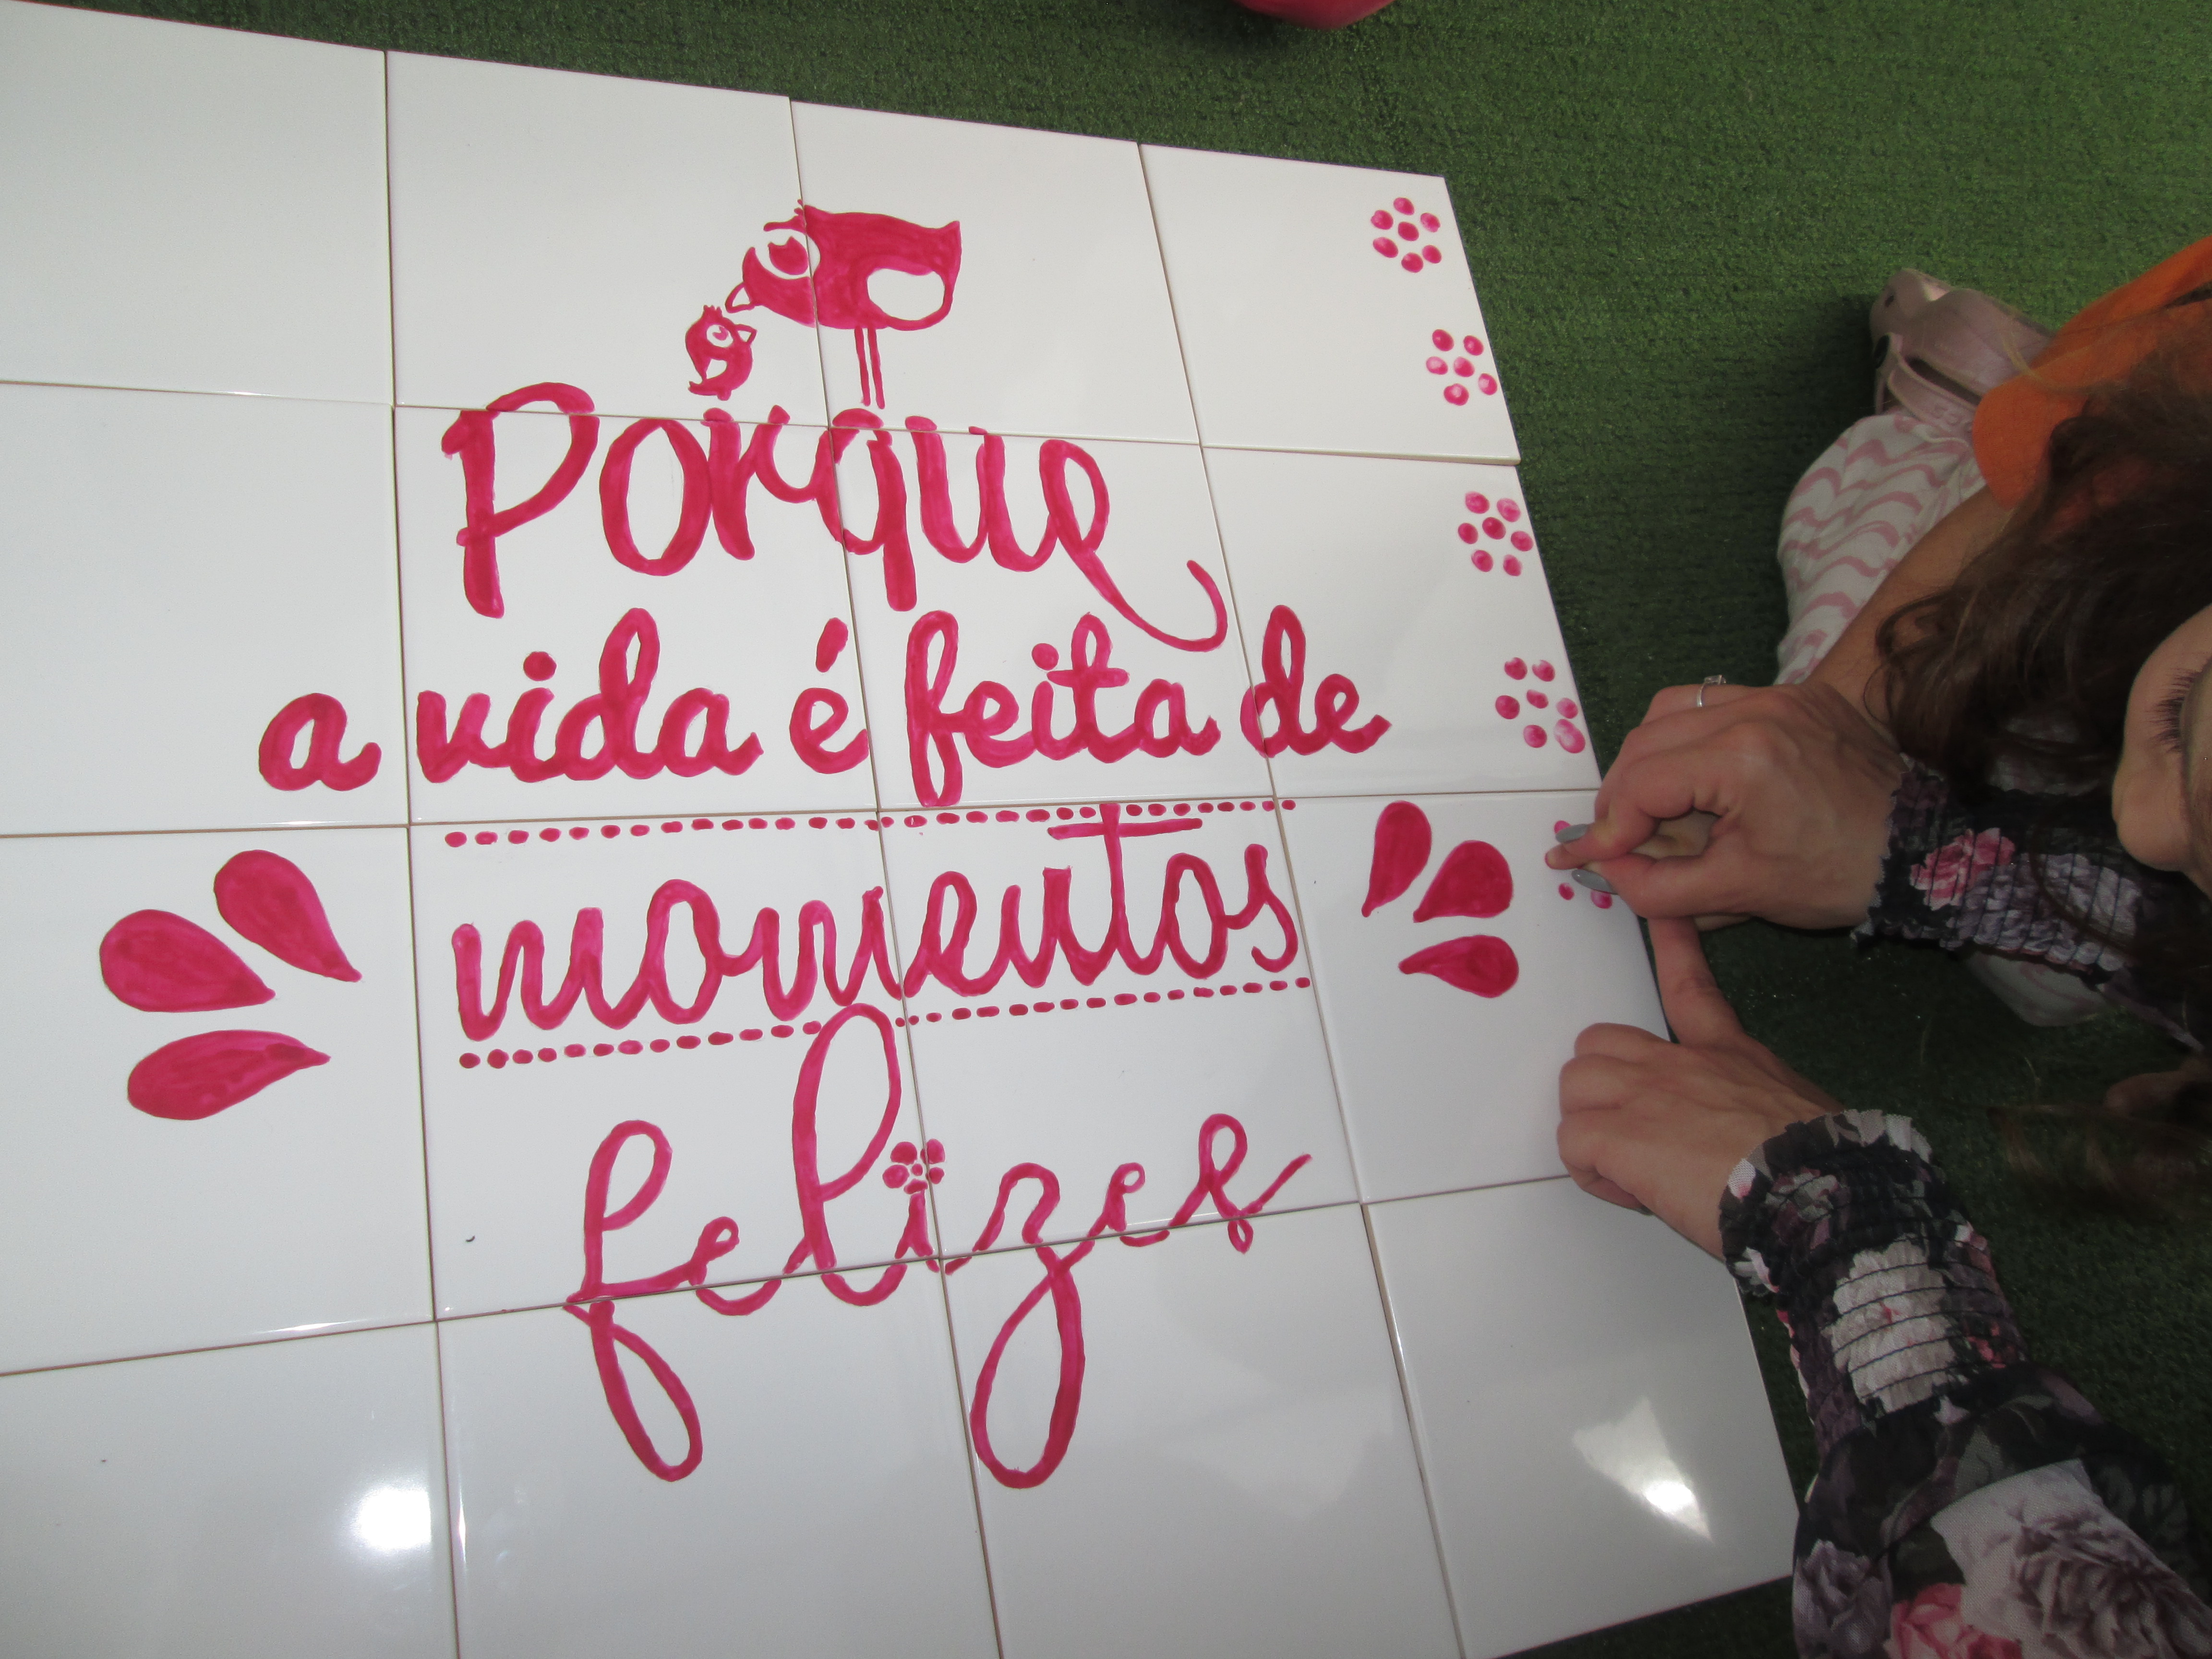 Porque
a vida é feita de
momentos
felizes